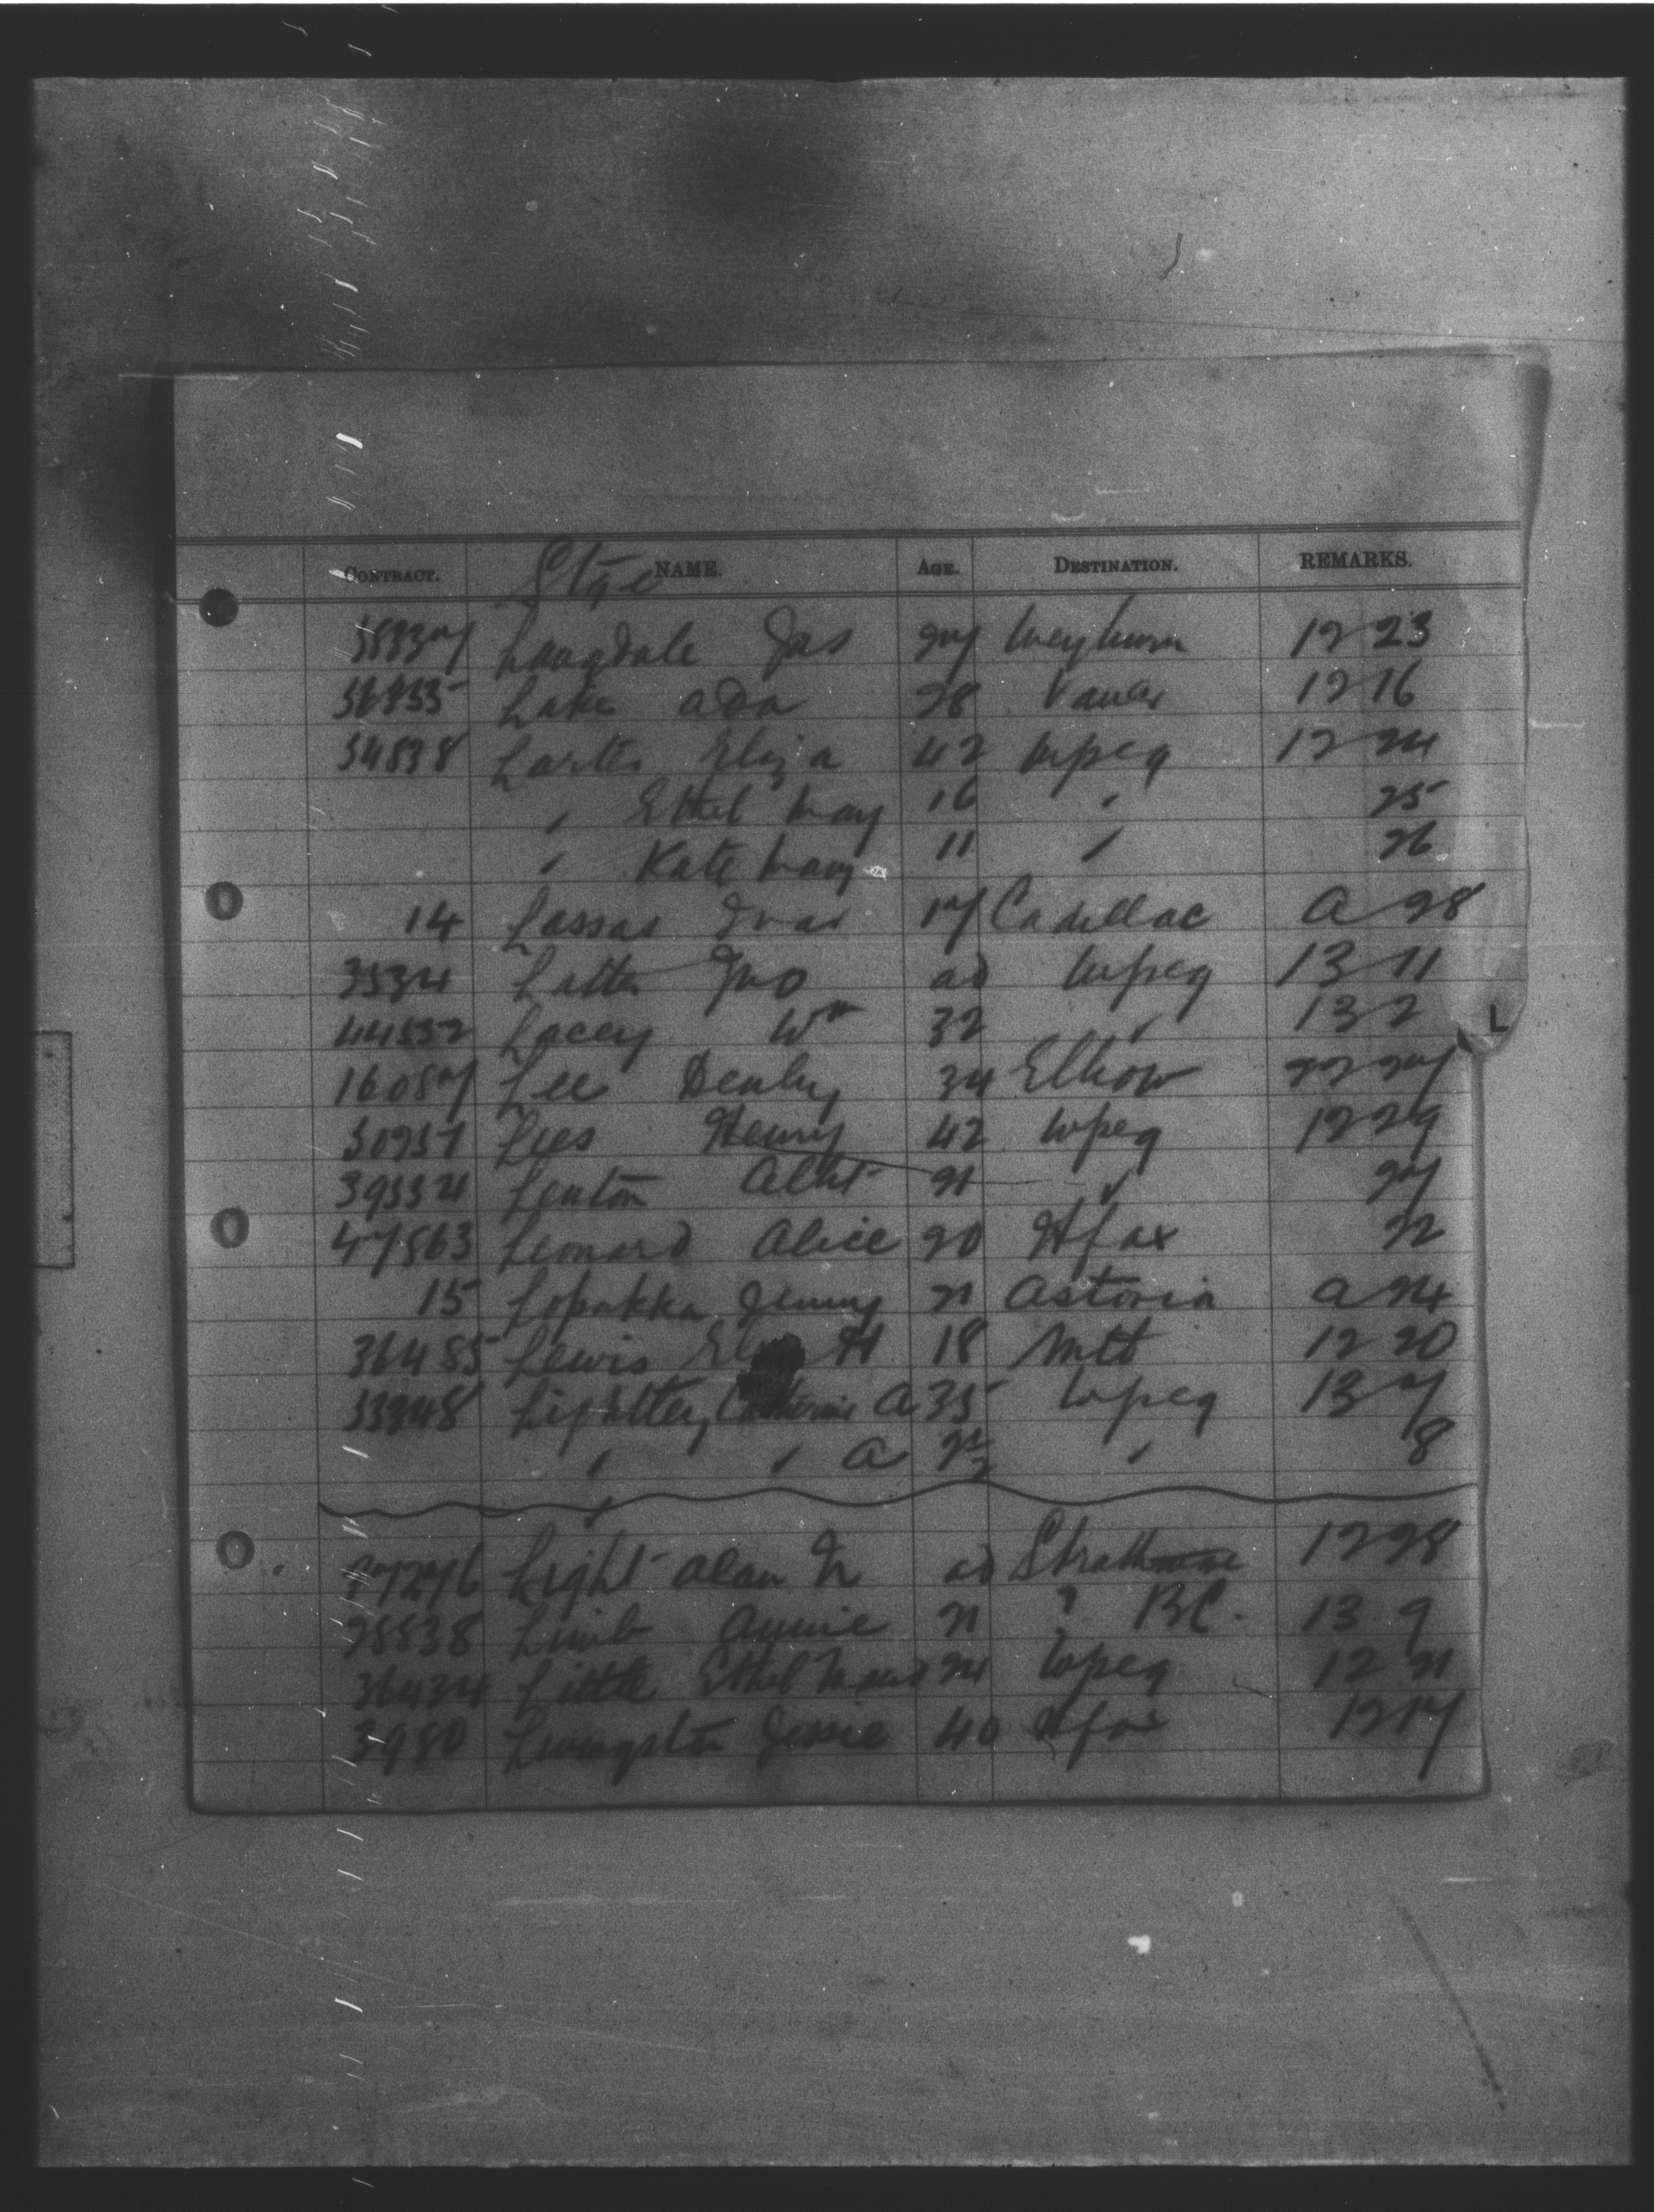 Stge
CONTRACT. NAME. AGE. DESTINATION. REMARKS.
Langdale Jas 27 Weyburn 12 23
Lake Ada 28 Vanver 12 16
54838 Larter Eliza 42 Wpeg 12 24
" Ethel May 16 " 25
" Kate Mary 11 " 26
14 Lassas Ivar 17 Cadillac A 28
3534 Latter Jno ad Wpeg 13 11
44552 Lacey Wm 32 " 13 2
16087 Lee Henley 34 Elbow 22 27
Lees Henry 42 Wpeg 12 29
Lenton Albt 21 " 27
47563 Leonard Alice 20 Hfax 22
15 Lopakka Jenny 21 Astoria A 24
36485 Lewis H 18 Mtl 12 20
Catherine A 35 Wpeg 13 7
" " A " 8
Light Alan ad Strathmore 12 28
28838 Limb Annie 21 ? BC. 13 9
36434 Little Ethel Maud 24 Wpeg 12 21
3980 Livingston Jessie 40 Hfax 12 17
L